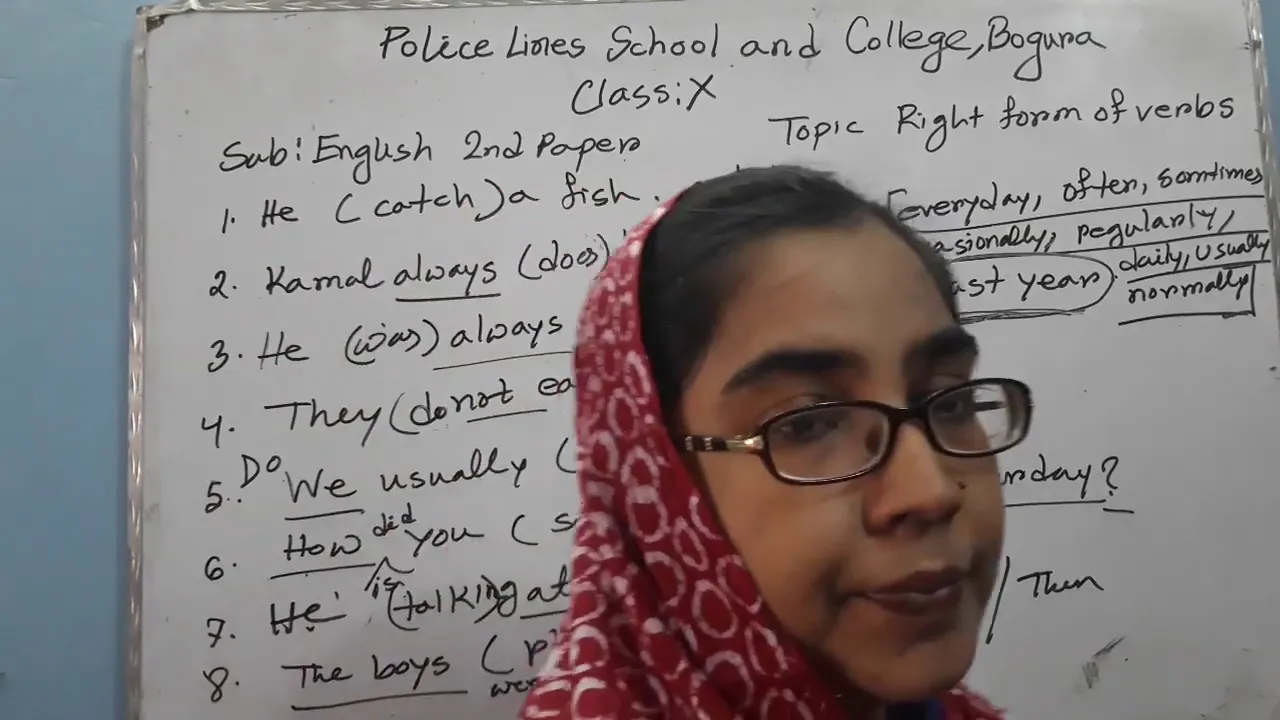 Police Lines School and College, Bogura
Class: X
Sub: English 2nd Paper
Topic Right form of verbs
1. He (catch) a fish.
[everyday, often, somtimes
2. Kamal always (does)
regularly,
daily, usually
normally]
year.
3. He (was) always
4. They (do not
5. Do We usually (
day?
6. How did you (
7. He is (talking) at
/ Then
8. The boys (